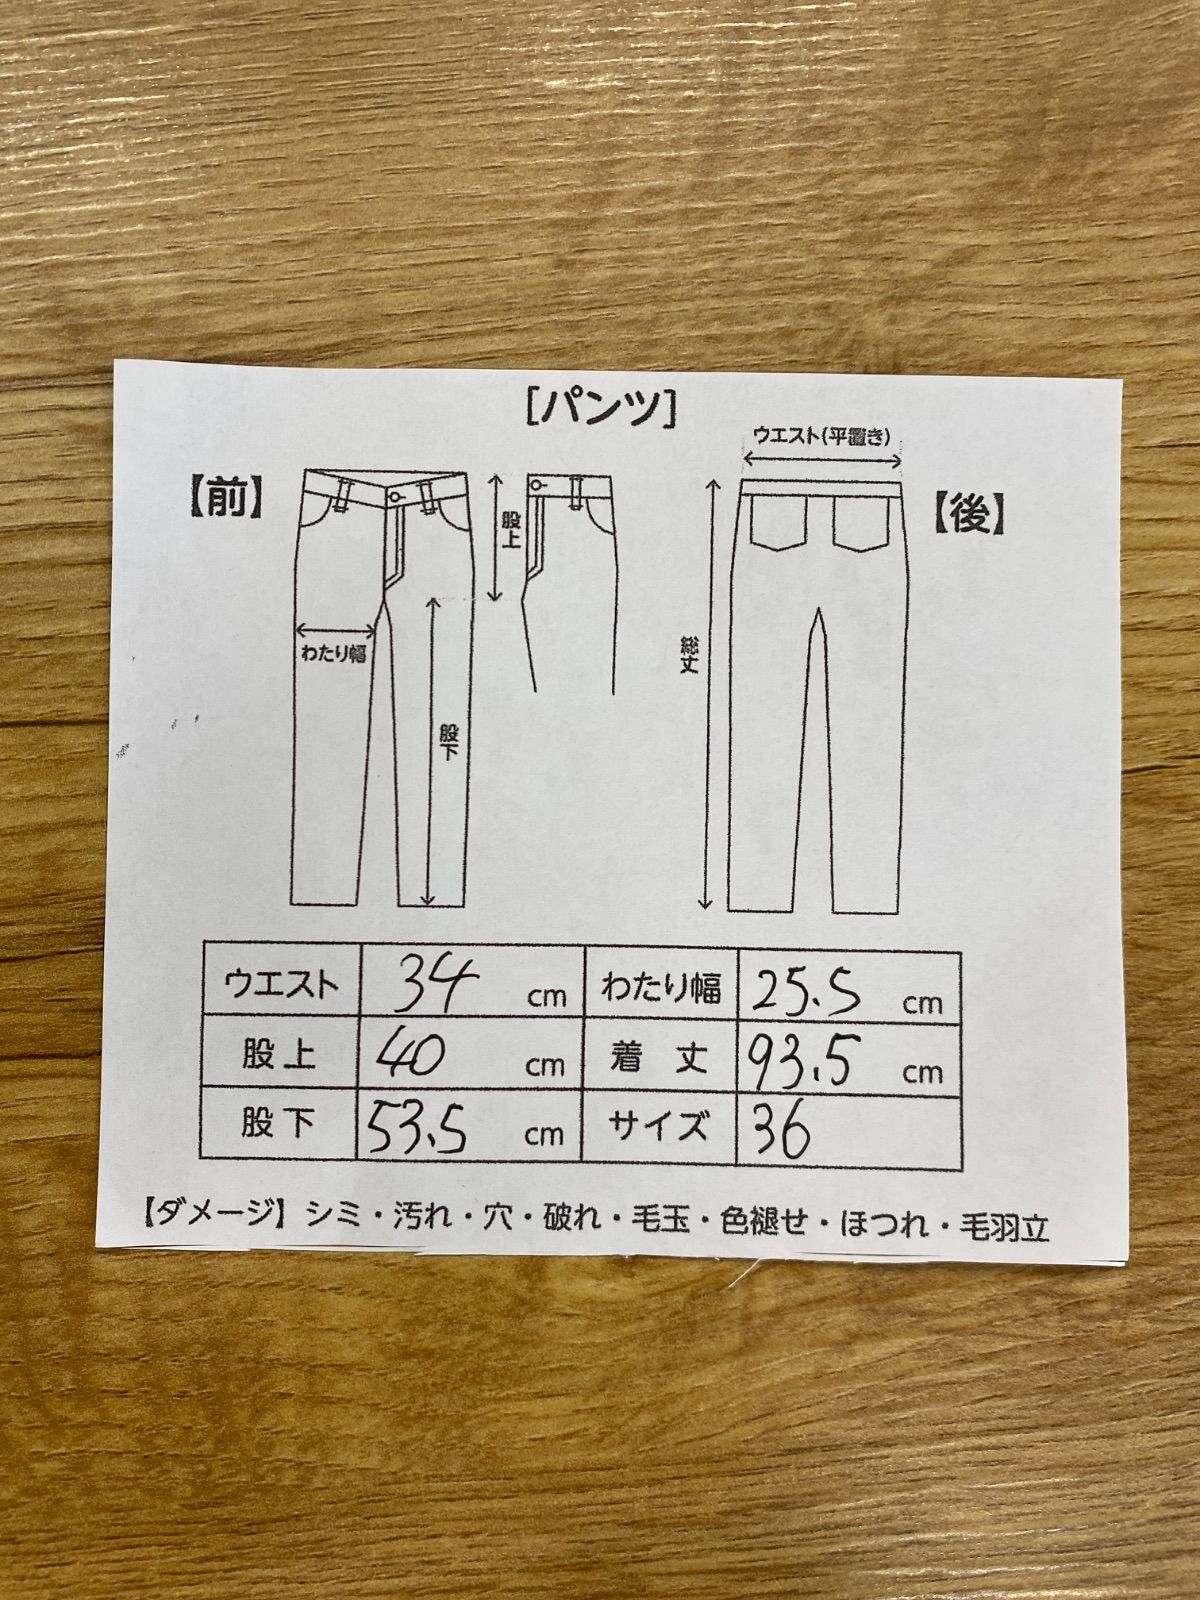 [パンツ]
ウエスト(平置き)
【前】
【後】
股上
わたり幅
股下
総丈
ウエスト 34 cm わたり幅 25.5 cm
股上 40 cm 着丈 93.5 cm
股下 53.5 cm サイズ 36
【ダメージ】シミ・汚れ・穴・破れ・毛玉・色褪せ・ほつれ・毛羽立